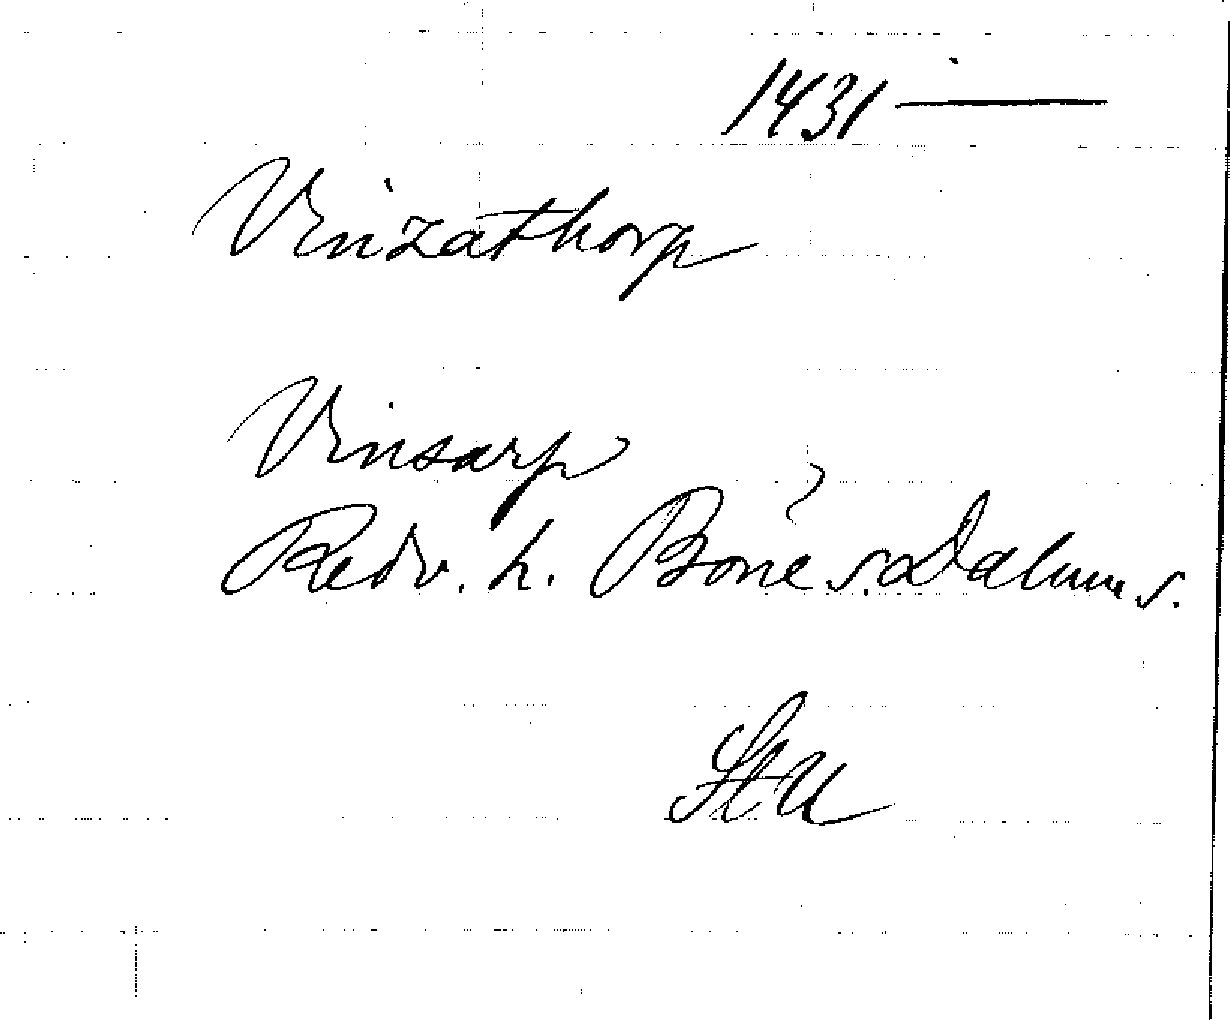 1431 —
Vinzathorp
Vinsarp
Redv. h. Böne s. Dalum s.
StU